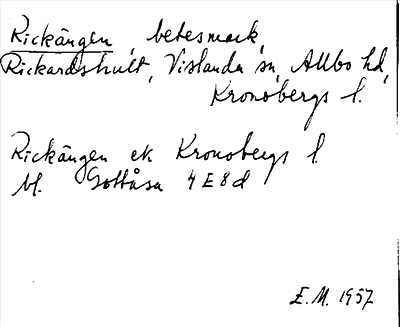 Rickängen, betesmark,
Rickardshult, Vislanda sn, Allbo hd,
Kronobergs l.
Rickängen ek Kronobergs l.
bl. Gottåsa 4 E 8 d
E.M. 1957